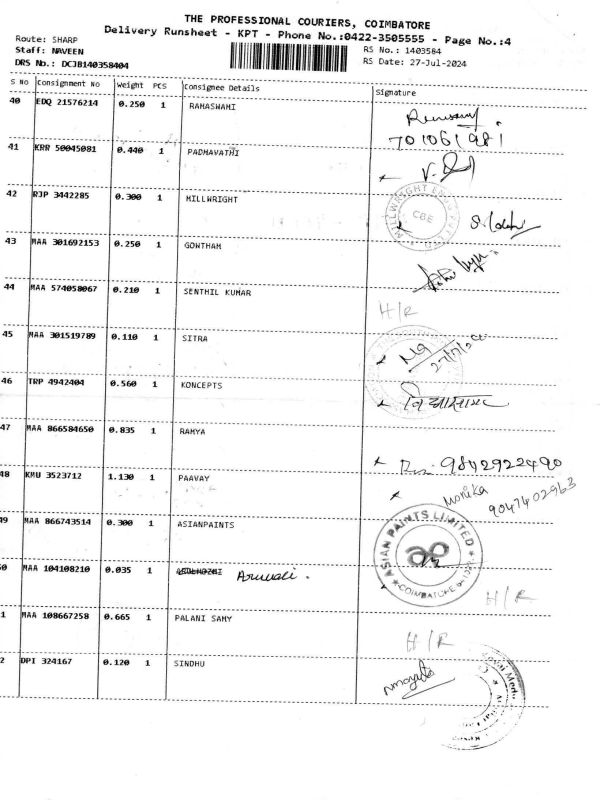 THE PROFESSIONAL COURIERS, COIMBATORE
Delivery Runsheet - KPT - Phone No.:0422-3505555 - Page No.:4
Route: SHARP
Staff: NAVEEN
DRS No.: DCJB140358404
RS No.: 1403584
RS Date: 27-Jul-2024
S No Consignment No Weight PCS Consignee Details Signature
40 EDQ 21576214 0.250 1 RAMASWAMI
41 KRR 50045081 0.440 1 PADMAVATHI
42 RJP 3442285 0.300 1 MILLWRIGHT
CBE
43 MAA 301692153 0.250 1 GOWTHAM
44 MAA 574058067 0.210 1 SENTHIL KUMAR H/R
45 MAA 301519789 0.110 1 SITRA
46 TRP 4942404 0.560 1 KONCEPTS
47 MAA 866584650 0.835 1 RAMYA 9842922490
48 KMU 3523712 1.130 1 PAAVAY Monika
9047402963
49 MAA 866743514 0.300 1 ASIANPAINTS
ASIAN PAINTS LIMITED
50 MAA 104108210 0.035 1 H/R
1 MAA 108667258 0.665 1 PALANI SAMY H/R
2 DPI 324167 0.120 1 SINDHU